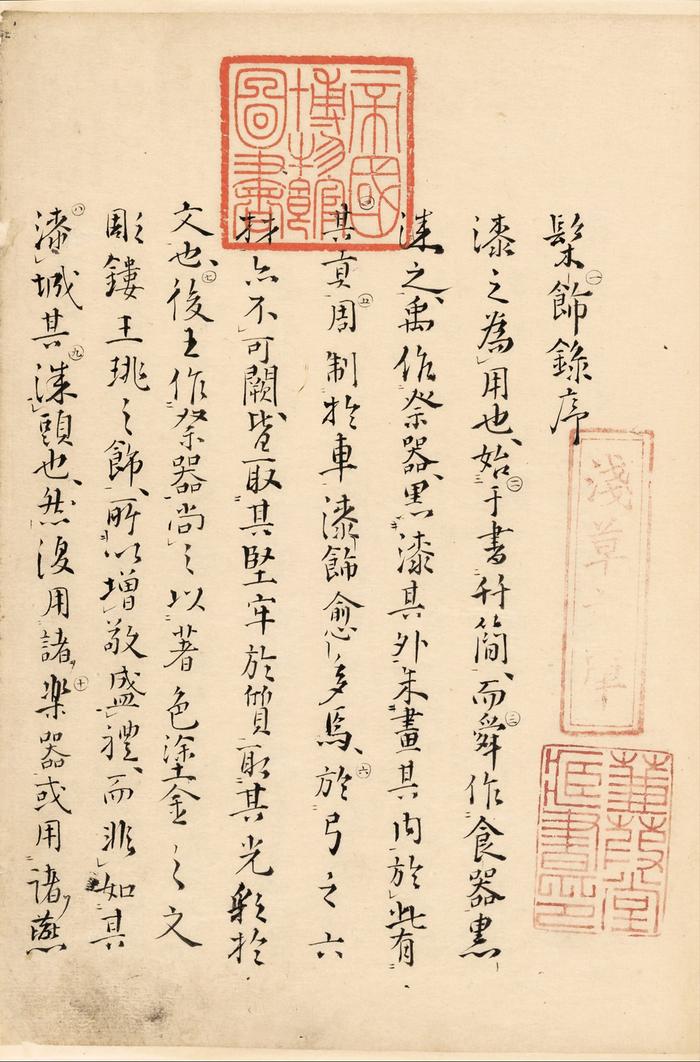 髹㊀飾錄序
漆之為用也、始㊁于書竹簡、而㊂舜作食器黒
漆之、禹作祭器、黒漆其外、朱畫其内、於此有
㊃其貢、㊄周制於車、漆飾愈多焉、㊅於弓之六
材、亦不可闕、皆取其堅牢於質、取其光彩於
文也、㊆後王作祭器、尚之以著色塗金之文
彫鏤玉珧之飾、所以增敬盛禮、而非如其
㊇漆城其㊈漆頭也、然復用諸㊉楽器或用諸燕
帝國博物館圖書
淺草文庫
蒹葭堂藏書印